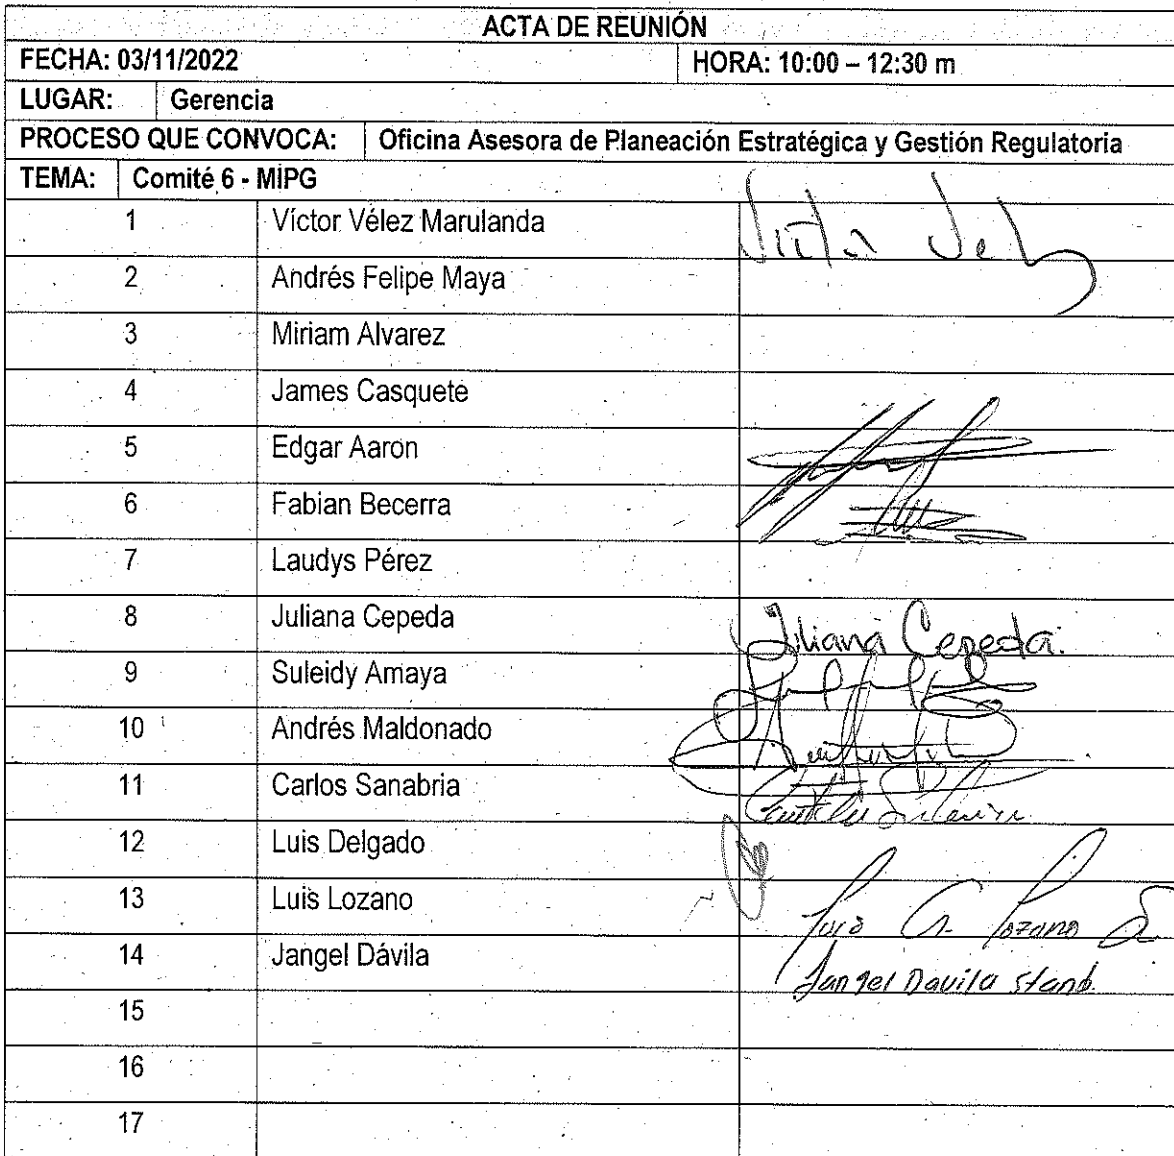 ACTA DE REUNIÓN
FECHA: 03/11/2022 HORA: 10:00 – 12:30 m
LUGAR: Gerencia
PROCESO QUE CONVOCA: Oficina Asesora de Planeación Estratégica y Gestión Regulatoria
TEMA: Comité 6 - MIPG
1 Víctor Vélez Marulanda
2 Andrés Felipe Maya
3 Miriam Alvarez
4 James Casquete
5 Edgar Aaron
6 Fabian Becerra
7 Laudys Pérez
8 Juliana Cepeda Juliana Cepeda.
9 Suleidy Amaya
10 Andrés Maldonado
11 Carlos Sanabria
12 Luis Delgado
13 Luis Lozano Luis G. Lozano
14 Jangel Dávila Jangel Davila Stand.
15
16
17